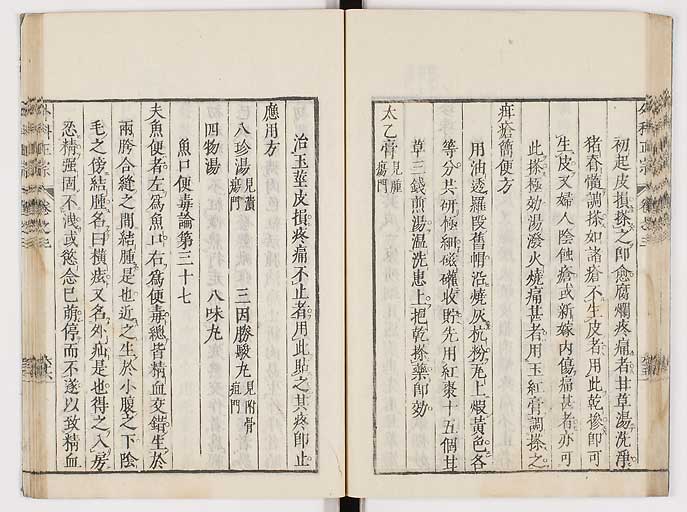 初起皮損搽之即愈腐爛疼痛者甘草湯洗淨
猪脊髓調搽如諸瘡不生皮者用此乾摻即可
生皮又婦人陰蝕瘡或新嫁內傷痛甚者亦可
此搽極効湯潑火燒痛甚者用玉紅膏調搽之
疳瘡簡便方
用油透羅段舊帽沿燒灰杭粉瓦上煅黃色各
等分共研極細磁礶收貯先用紅棗十五個甘
草三錢煎湯温洗患上挹乾搽藥即効
太乙膏見腫瘍門
治玉莖皮損疼痛不止者用此貼之其疼即止
應用方
八珍湯見潰瘍門 三因勝駿丸見附骨疽門
四物湯 八味丸
魚口便毒論第三十七
夫魚便者左為魚口右為便毒總皆精血交錯生於
兩胯合縫之間結腫是也近之生於小腹之下陰
毛之傍結腫名曰橫痃又名外疝是也得之入房
忍精強固不洩或慾念已萌停而不遂以致精血
外科正宗 卷之三